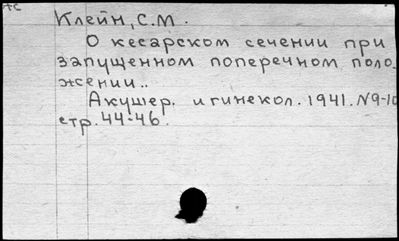 АС
Клейн, С.М.
О кесарском сечении при
запущенном поперечном поло-
жении..
Акушер. и гинекол. 1941. N9-10
стр. 44-46.